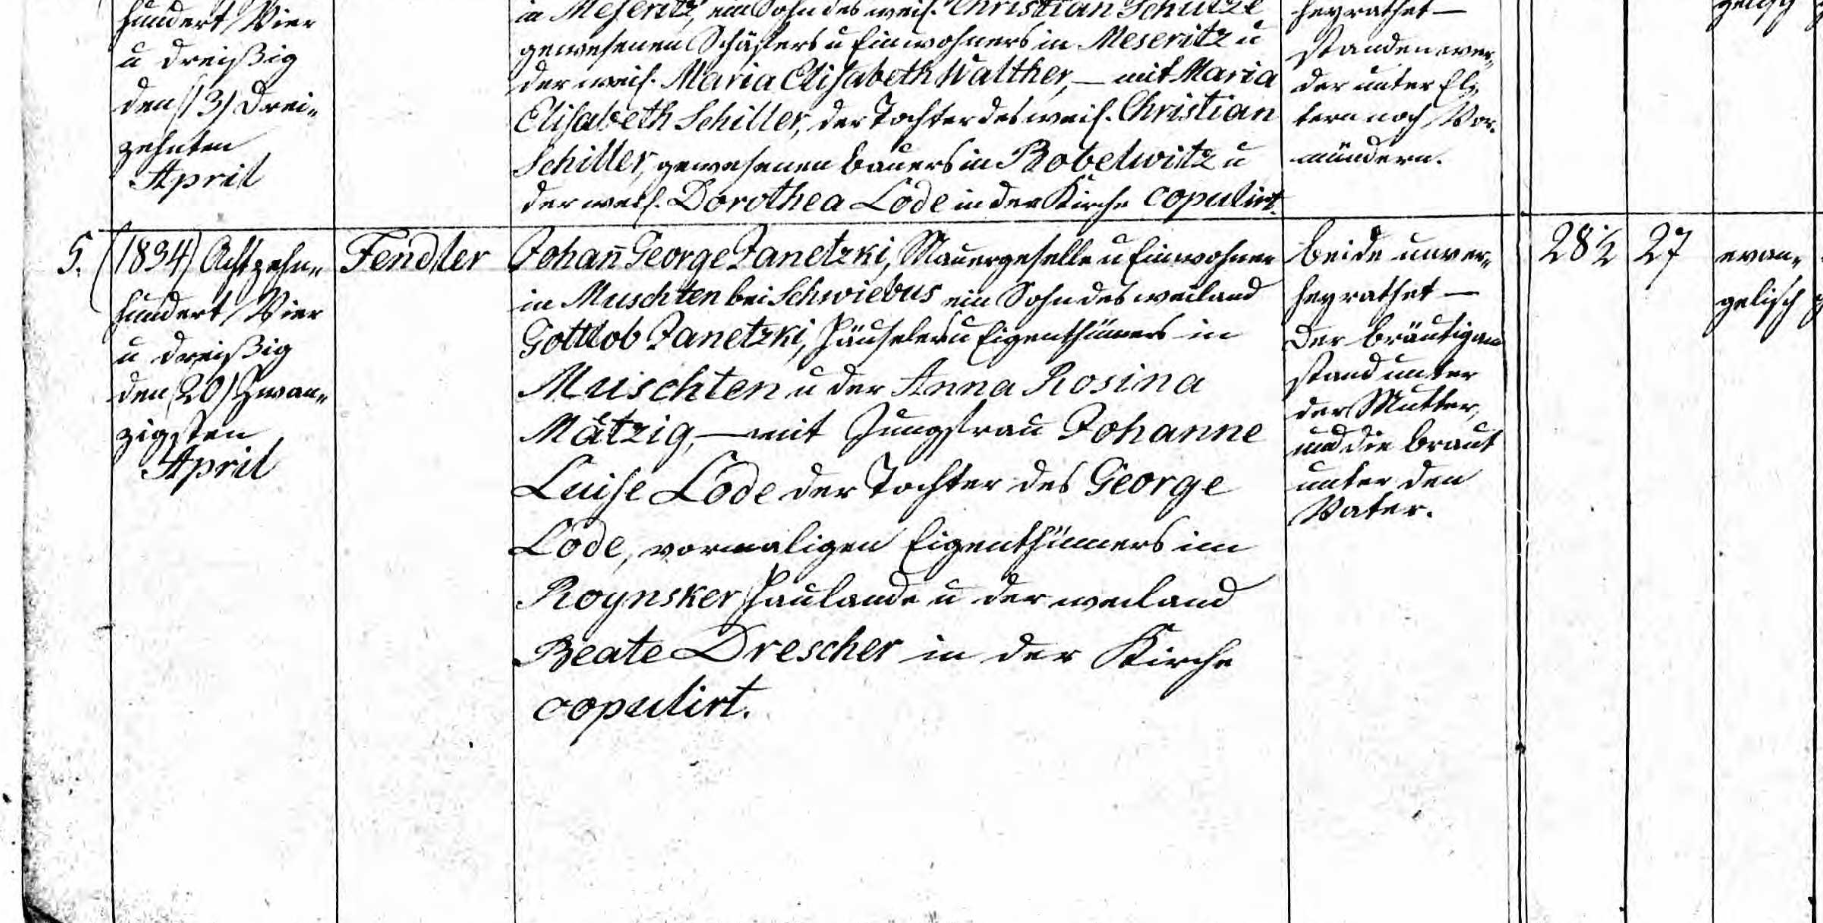 hundert Vier
u dreißig
den (13) Drei-
zehnten
April
in Meseritz, ein Sohn des weil. Christian Schultze
gewesenen Schäfers u Einwohners in Meseritz u
der weil. Maria Elisabeth Walther, — mit Maria
Elisabeth Schiller, der Tochter des weil. Christian
Schiller, gewesenen Bauers in Bobelwitz u
der weil. Dorothea Lode in der Kirche copulirt.
heyrathet —
standen we-
der unter El-
tern noch Vor-
mündern.
5.
(1834) Achtzehn-
hundert Vier
u dreißig
den (20) Zwan-
zigsten
April
Fendler
Johan̄ George Janetzki, Mauergeselle u Einwohner
in Muschten bei Schwiebus ein Sohn des weiland
Gottlob Janetzki, Häuslers u Eigenthümers in
Muschten u der Anna Rosina
Mätzig, — mit Jungfrau Johanne
Luise Lode der Tochter des George
Lode, vormaligen Eigenthümers im
Roynsker Haulande u der weiland
Beate Drescher in der Kirche
copulirt.
beide unver-
heyrathet —
Der Bräutigam
stand unter
der Mutter,
und die Braut
unter den
Vater.
28½
27
evan-
gelisch